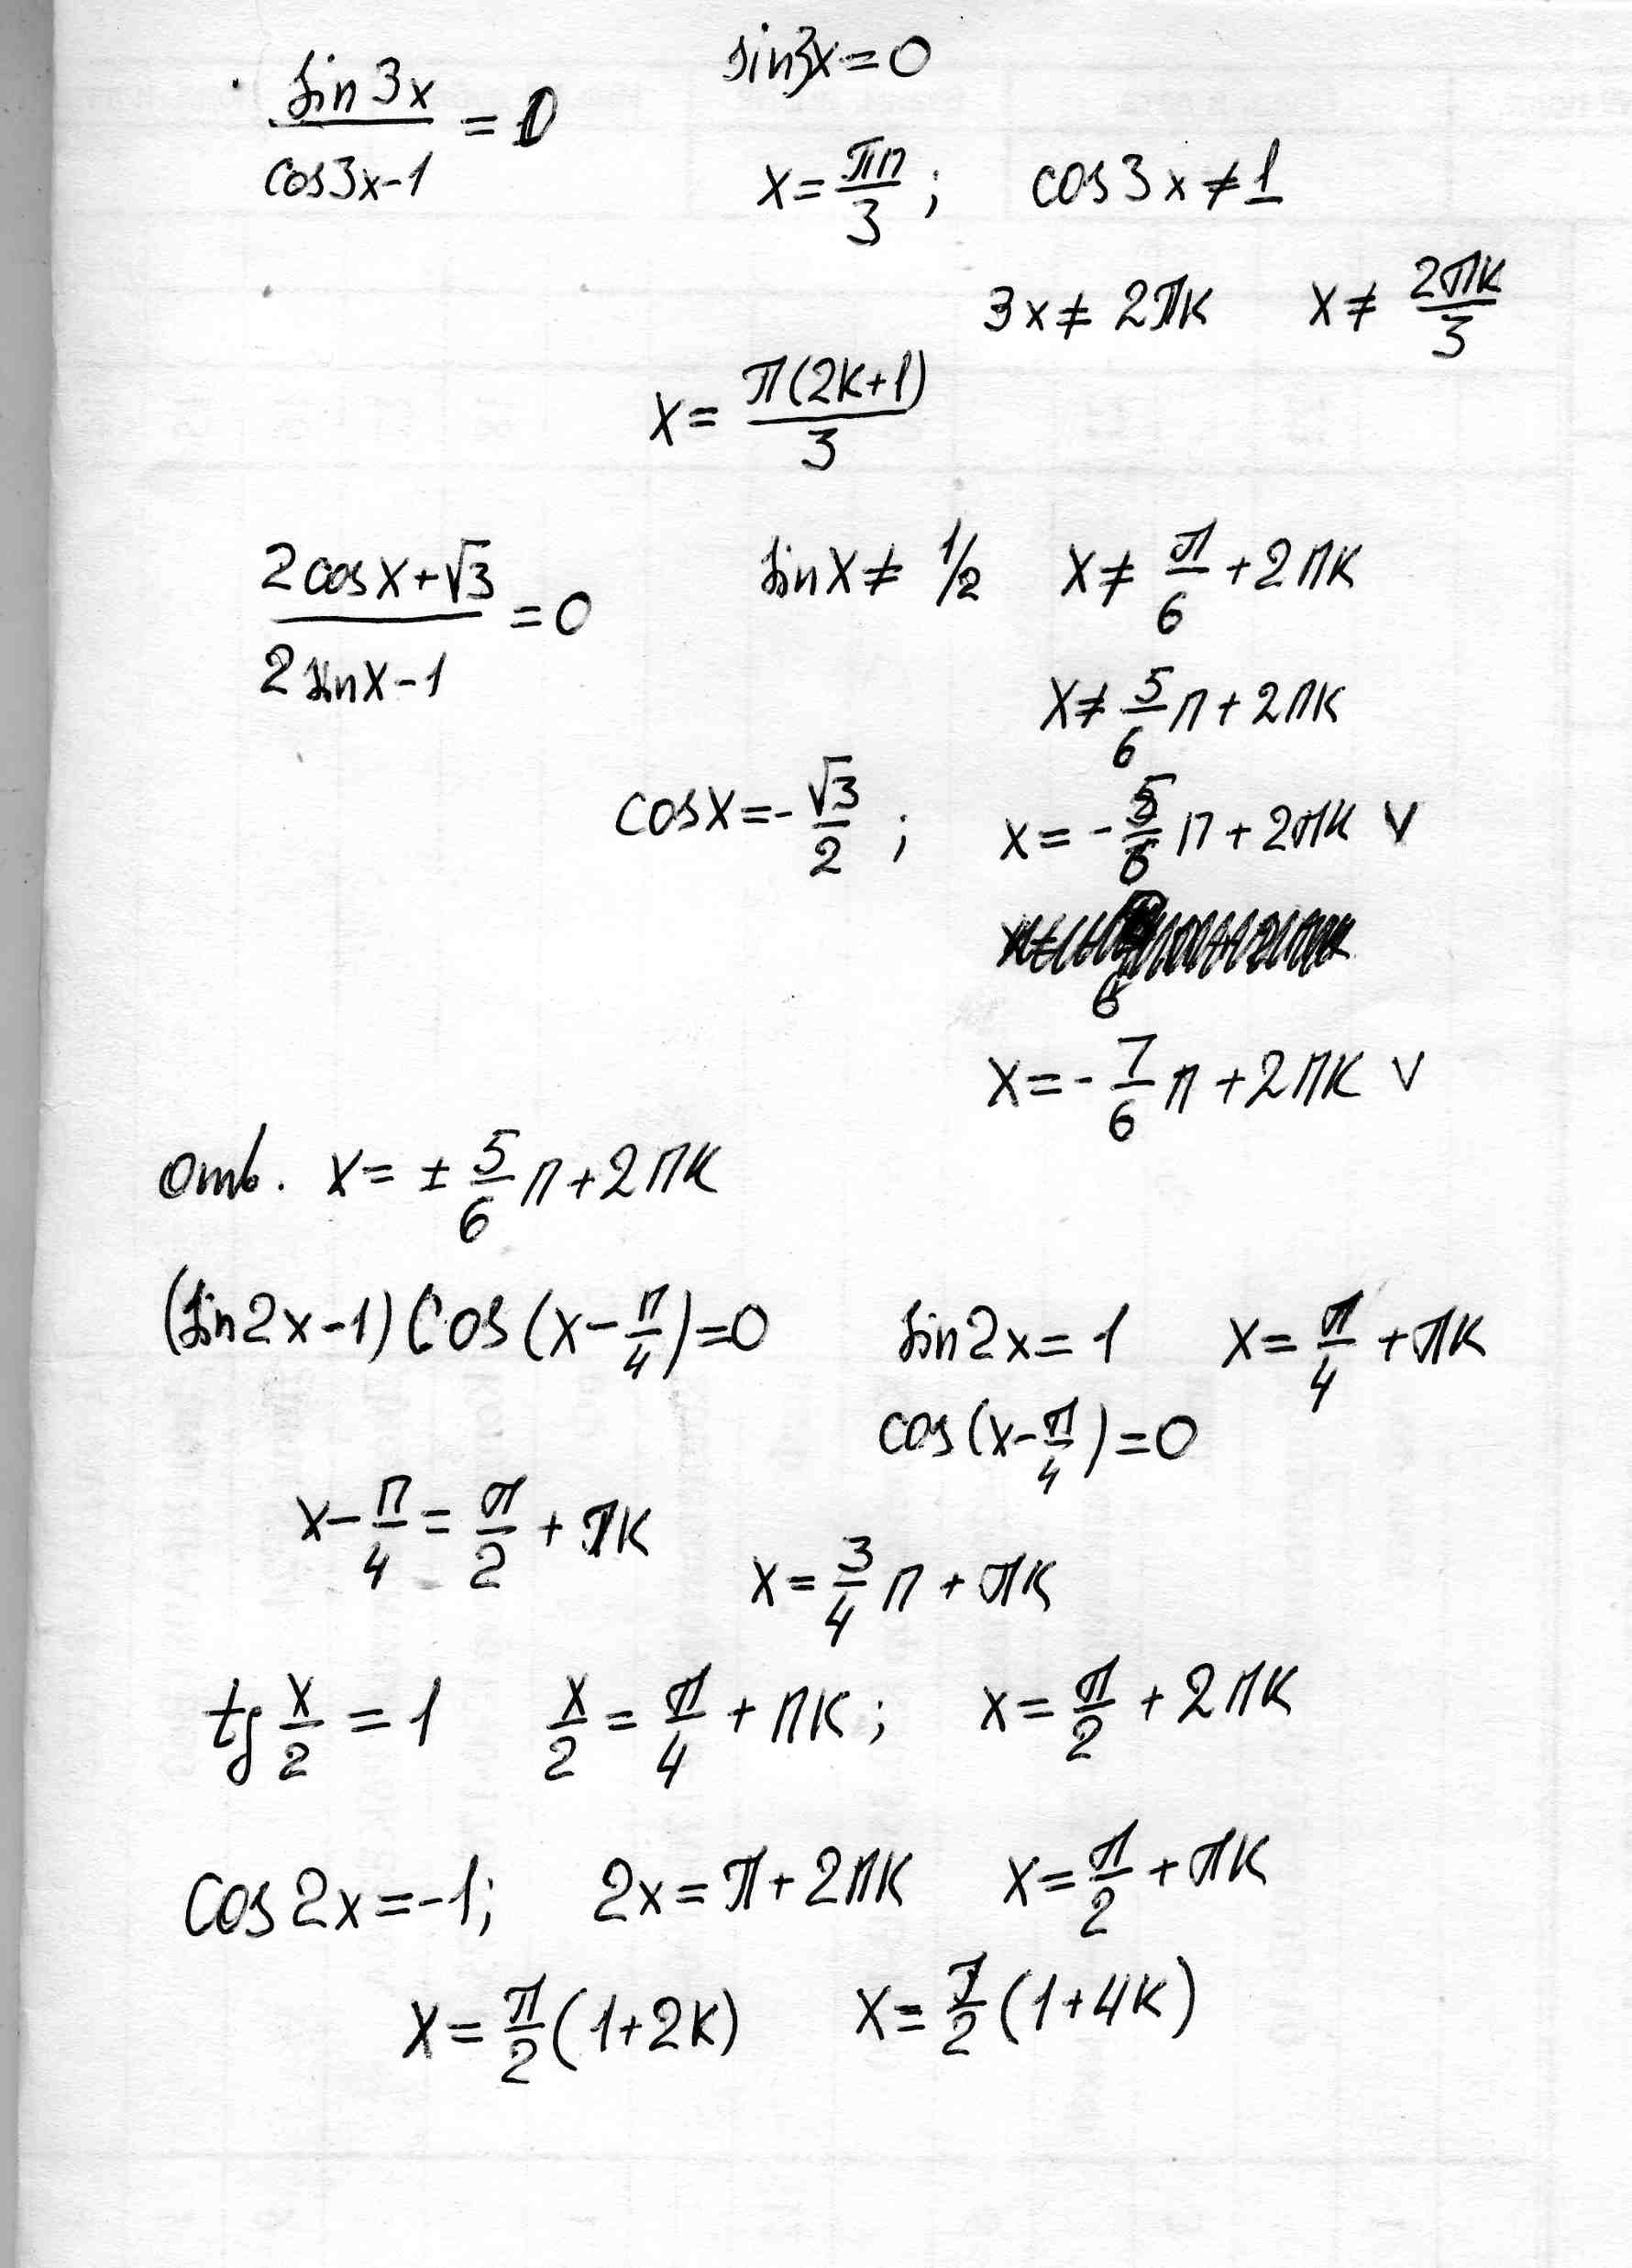 sin3x=0
sin 3x / cos3x-1 = 0
x = πn/3 ; cos 3x ≠ 1
3x ≠ 2πk x ≠ 2πk/3
x = π(2k+1)/3
2cosx+√3 / 2sinx-1 = 0 sinx ≠ 1/2 x ≠ π/6 + 2πk
x ≠ 5/6 π + 2πk
cosx = -√3/2 ; x = -5/6 π + 2πk v
x = -7/6 π + 2πk v
отв. x = ± 5/6 π + 2πk
(sin2x-1) cos(x-π/4)=0 sin2x = 1 x = π/4 + πk
cos(x-π/4)=0
x-π/4 = π/2 + πk
x = 3/4 π + πk
tg x/2 = 1 x/2 = π/4 + πk; x = π/2 + 2πk
cos2x=-1; 2x = π+2πk x = π/2 + πk
x = π/2 (1+2k) x = π/2 (1+4k)